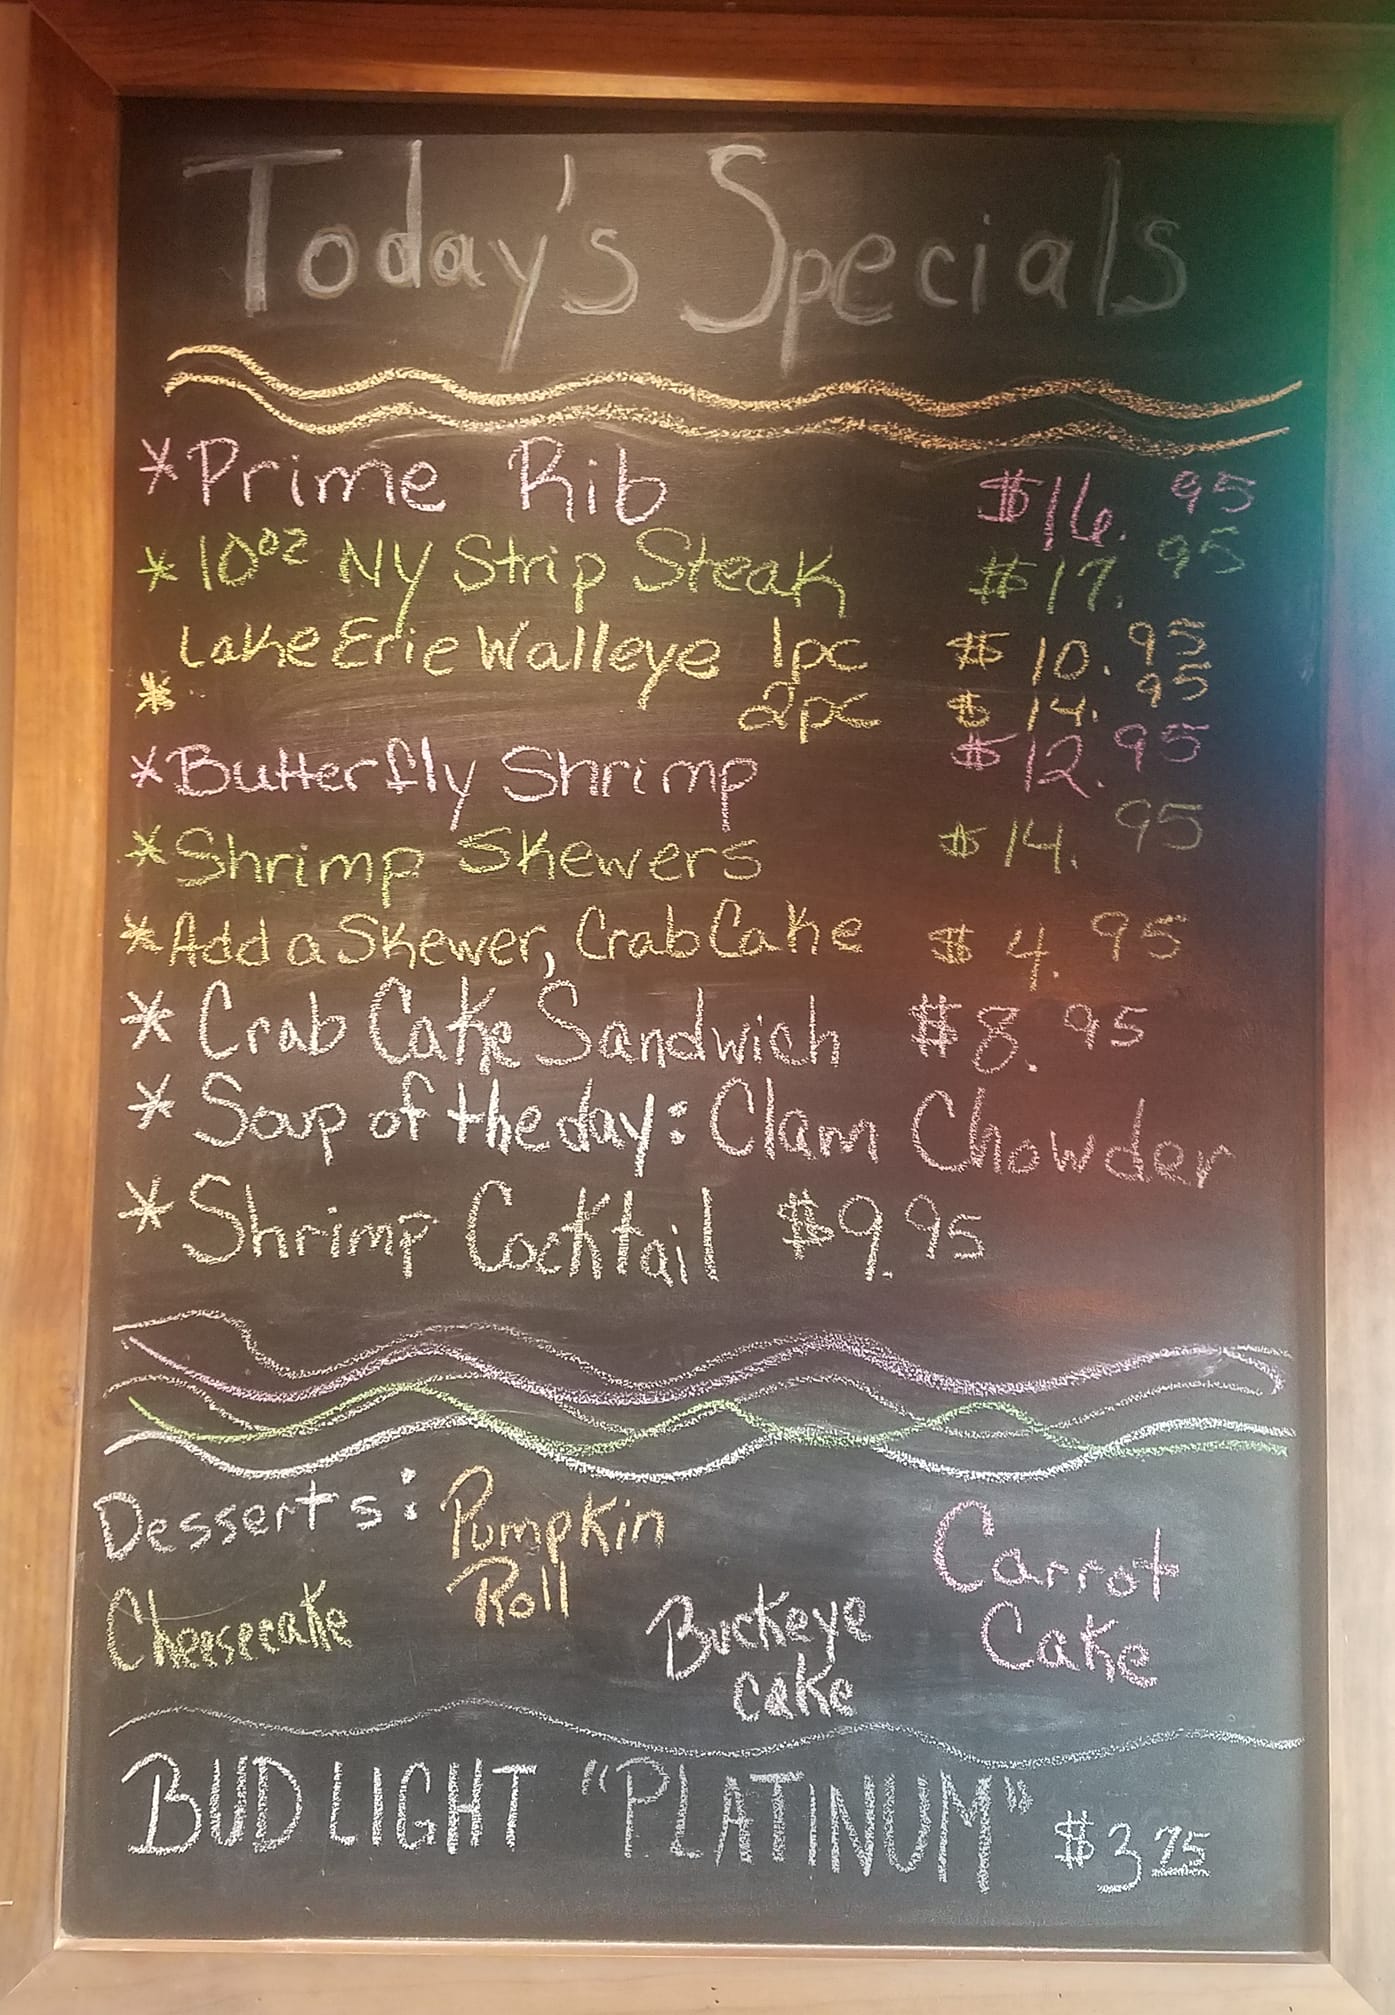 Today's Specials
*Prime Rib $16.95
*10oz NY Strip Steak $17.95
*Lake Erie Walleye 1pc $10.95
2pc $14.95
*Butterfly Shrimp $12.95
*Shrimp Skewers $14.95
*Add a Skewer, Crab Cake $4.95
*Crab Cake Sandwich $8.95
*Soup of the day: Clam Chowder
*Shrimp Cocktail $9.95
Desserts:
Pumpkin
Roll
Cheesecake
Buckeye
cake
Carrot
Cake
BUD LIGHT "PLATINUM" $3 75